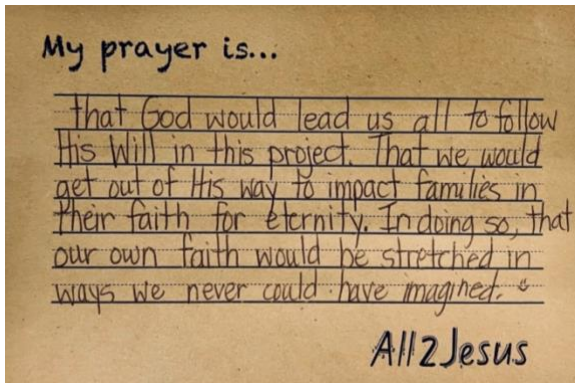 My prayer is...
that God would lead us all to follow
His Will in this project. That we would
get out of His way to impact families in
their faith for eternity. In doing so, that
our own faith would be stretched in
ways we never could have imagined.
All2Jesus